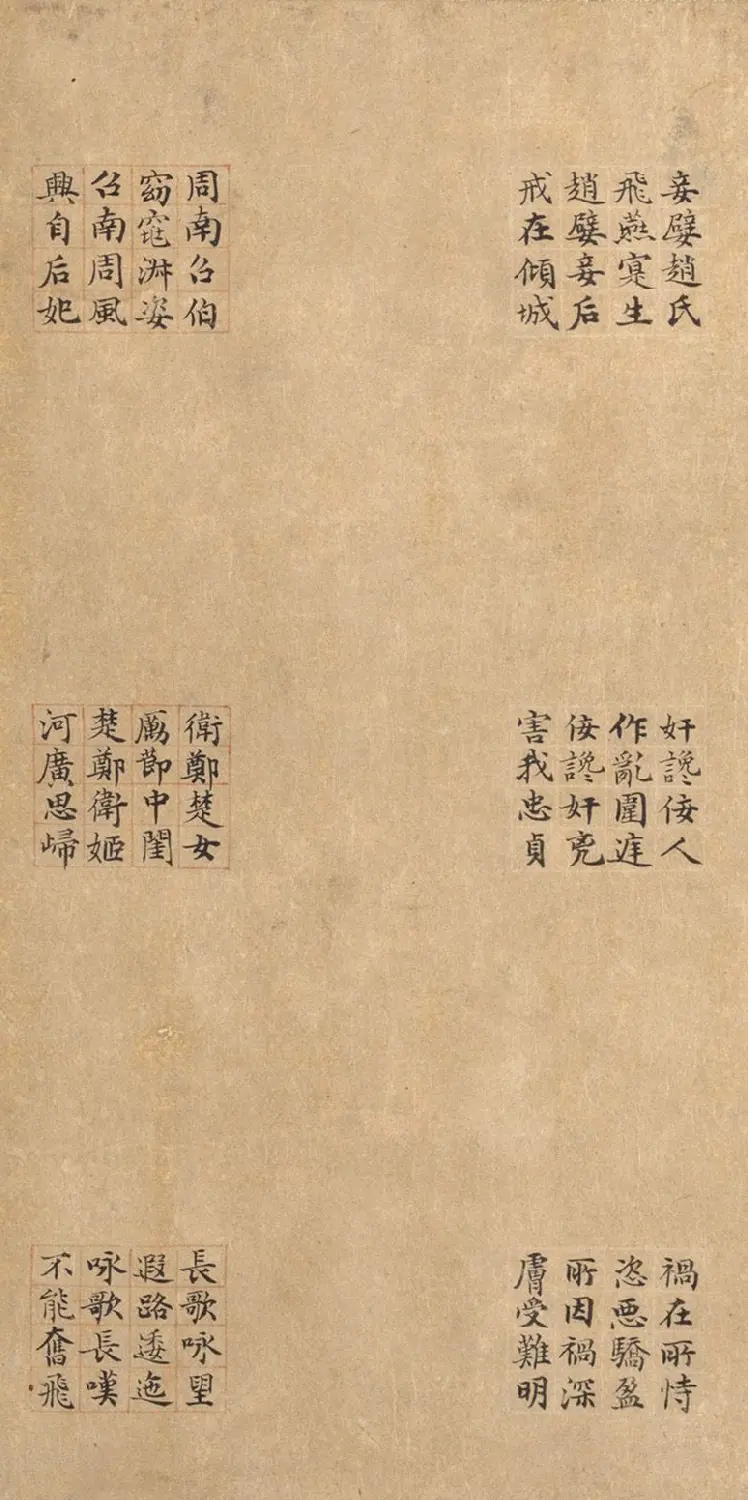 妾嬖趙氏
飛燕寔生
趙嬖妾后
戒在傾城
奸讒佞人
作亂圍庭
佞讒奸兇
害我忠貞
禍在所恃
恣悪驕盈
所因禍深
膚受難明
周南召伯
窈窕淑姿
召南周風
興自后妃
衛鄭楚女
厲節中閨
楚鄭衛姬
河廣思歸
長歌咏望
遐路逶迤
咏歌長嘆
不能奮飛